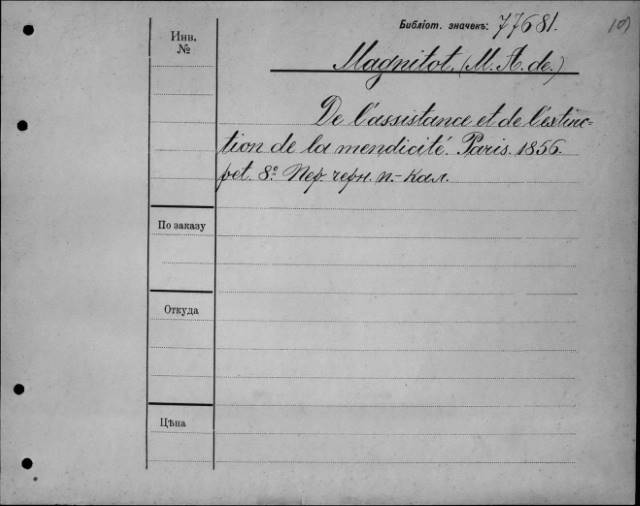 Библіот. значекъ: 77681.
Инв.
№
Magnitot (M. A. de.)
De l'assistance et de l'extinc=
tion de la mendicité. Paris. 1856.
pet. 8º. Пер. черн. п.-кал.
По заказу
Откуда
Цѣна